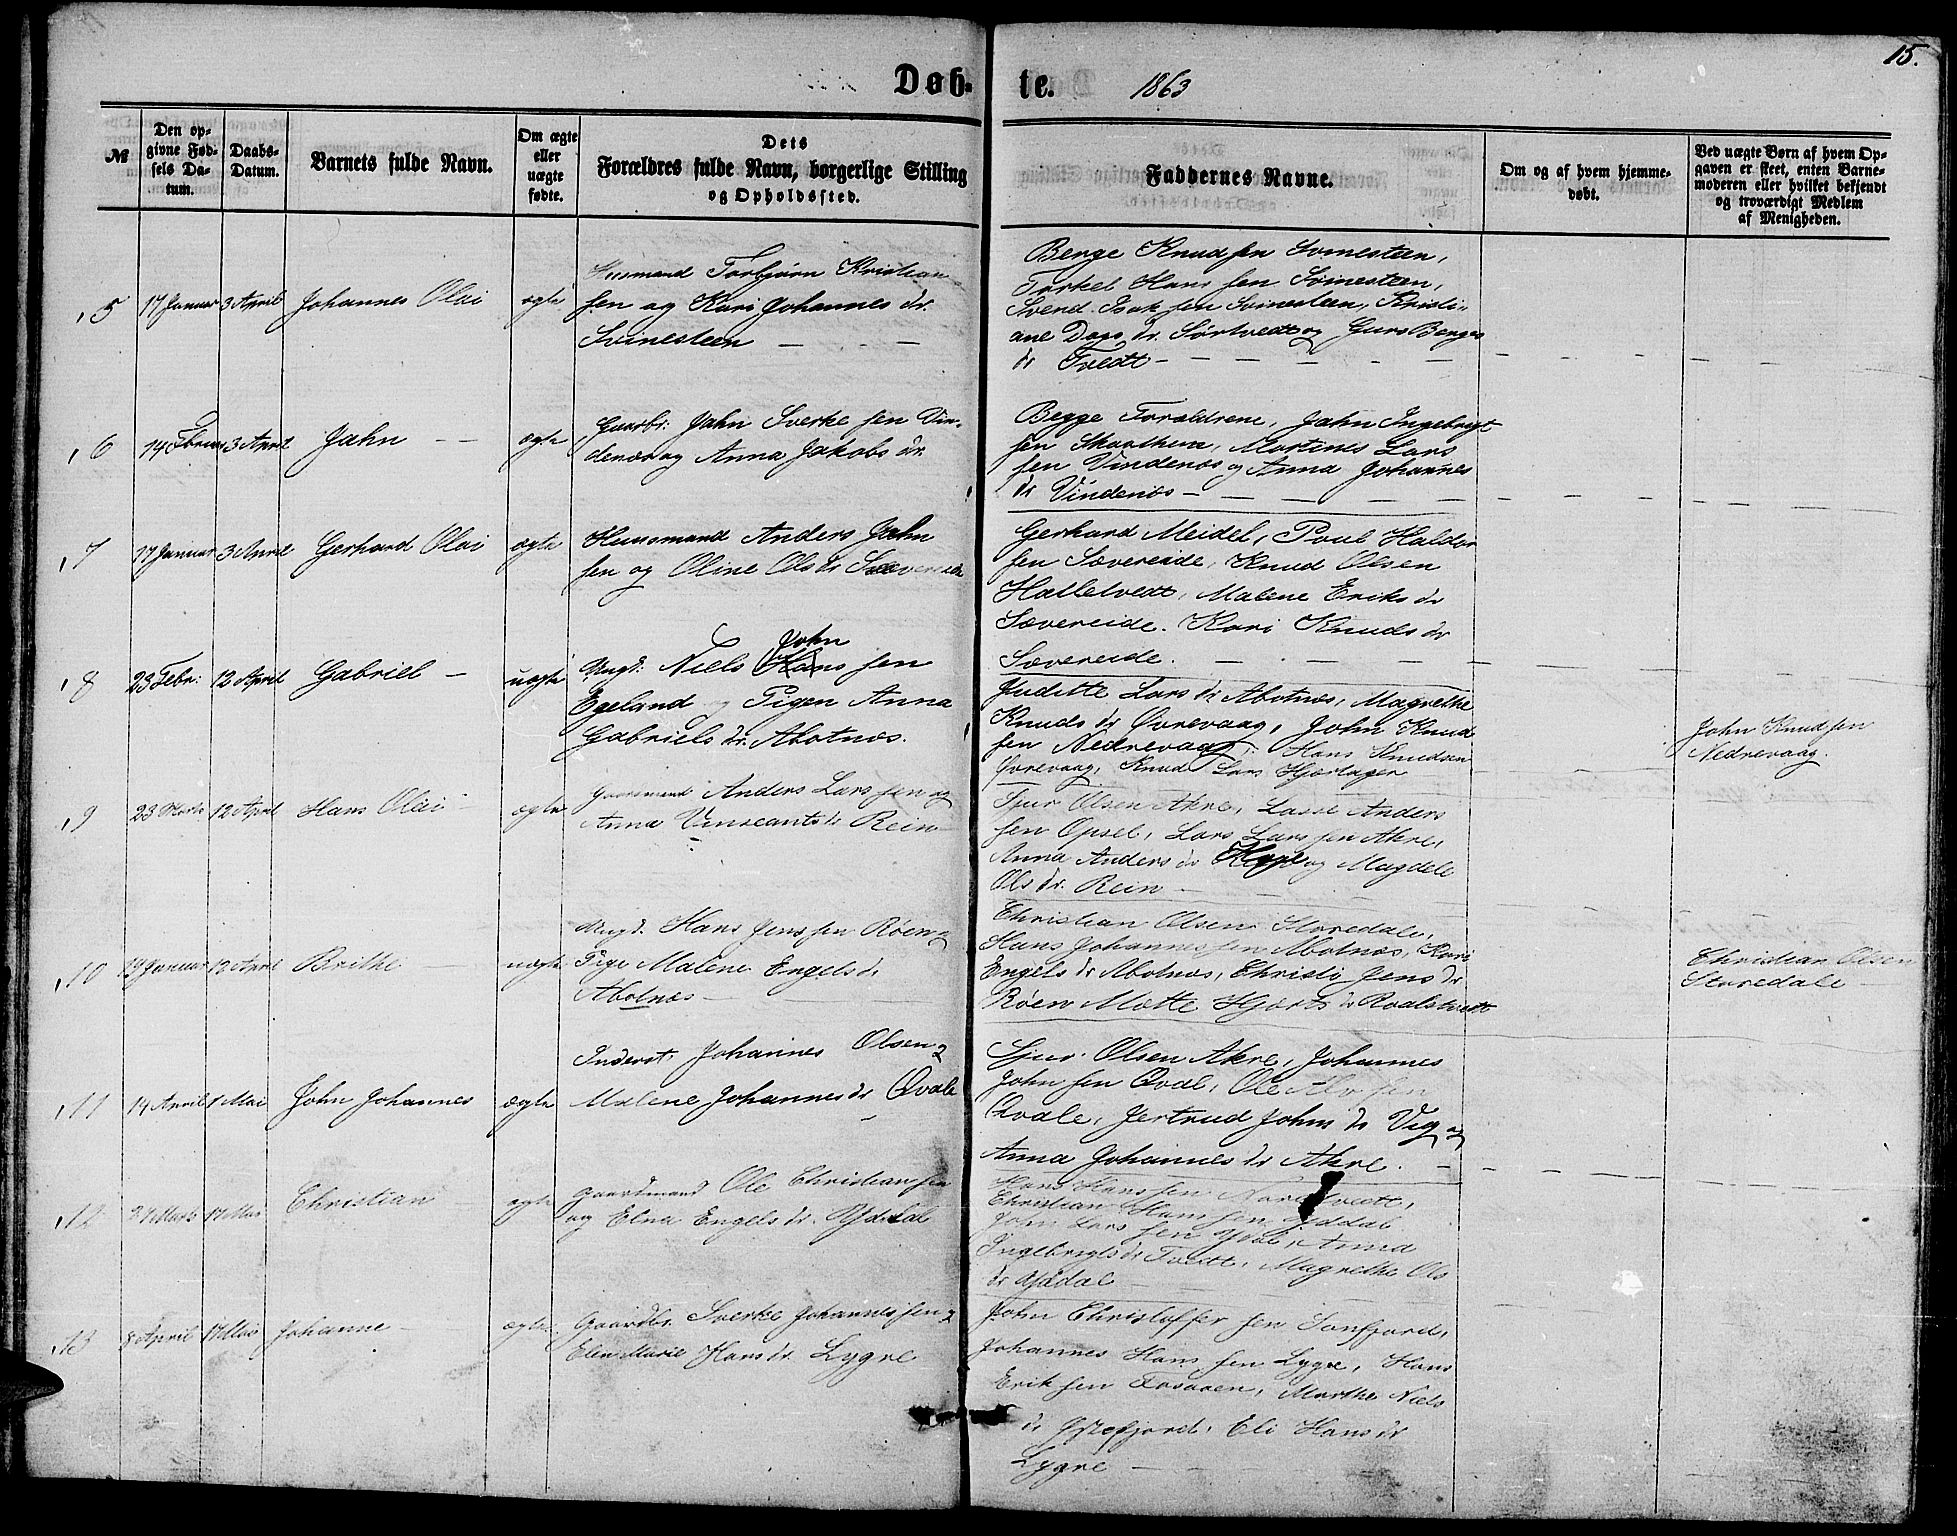 15.
Døb- te. 1863
№
Den op-
givne Fød-
sels Da-
tum.
Daabs-
Datum.
Barnets fulde Navn.
Om ægte
eller
uægte
fødte.
Dets
Forældres fulde Navn, borgerlige Stilling
og Opholdssted.
Faddernes Navne.
Om og af hvem hjemme-
døbt.
Ved uægte Børn af hvem Op-
gaven er skeet, enten Barne-
moderen eller hvilket bekjendt
og troværdigt Medlem
af Menigheden.
5 17 Januar 3 April Johannes Olai ægte
Huusmand Torbjørn Kristian
sen og Kari Johannes dr.
Svinesteen
Berge Knudsen Svinesteen,
Torkel Hans sen Svinesteen,
Svend Isak sen Svinesteen, Kristi-
ane Dags dr. Sørtvedt og Guro Berges
dr Tvedt
6 14 Februar 3 April Jahn ægte
Gaardbr. Jahn Sverke sen Vin-
denæs og Anna Jakobs dr
Begge Forældrene, Jahn Ingebrigt
sen Skaathem, Martinus Lars
sen Vindenæs og Anna Johannes
dr Vindenæs
7 17 Januar 3 April Gerhard Olai ægte
Huusmand Anders Jahn
sen og Oline Ols dr Sævereide
Gerhard Meidel, Poul Haldor
sen Sævereide, Knud Olsen
Hatletvedt, Malene Eriks dr
Sævereide. Kari Knuds dr
Sævereide.
8 23 Febr: 12 April Gabriel uægte
John
Ungk. Niels Hans sen
Egeland og Pigen Anna
Gabriels dr. Abotnæs.
Juditte Lars dr Abotnæs, Magrethe
Knuds dr Øvrevaag, John Knud
sen Nedrevaag, Hans Knudsen
Øvrevaag, Knud Lars Hjortager
John Knudsen
Nedrevaag.
9 23 Marts 12 April Hans Olai ægte
Gaardmand Anders Lars sen og
Anna Vinseants dr Rein
Sjur Olsen Akre, Lasse Anders
sen Opsel, Lars Lars sen Akre,
Anna Anders dr og Magdele
Ols dr. Rein
10 19 Januar 12 April Brithe uægte
Ungk. Hans Jens sen Røen og
Pige Malene Engels dr
Abotnæs
Christian Olsen Storedale,
Hans Johannes sen Abotnæs, Kari
Engels dr Abotnæs, Christi Jens dr
Røen Mætte Hjorts dr Roalstvedt
Christian Olsen
Storedale
11 14 April 1 Mai John Johannes ægte
Inderst. Johannes Olsen og
Malene Johannes dr Qvale
Sjur Olsen Akre, Johannes
John sen Qval, Ole sen
Qvale, Jertrud Johns dr Vig og
Anna Johannes dr Akre.
12 Marts 17 Mai Christian ægte
Gaardmand Ole Christian sen
og Elna Engels dr. Yddal
Hans Hans sen
Christian Hans sen Yddal
John Lars sen Anna
Ingebrigts dr Tvedt, Magrethe Ols
dr Yddal
13 8 April 17 Mai Johanne ægte
Gaardbr. Sverke Johannes sen og
Elen Marie Hans dr. Lygre
John Christoffer sen
Johannes Hans sen Lygre, Hans
Erik sen Marthe Niels
dr Eli Hans dr
Lygre